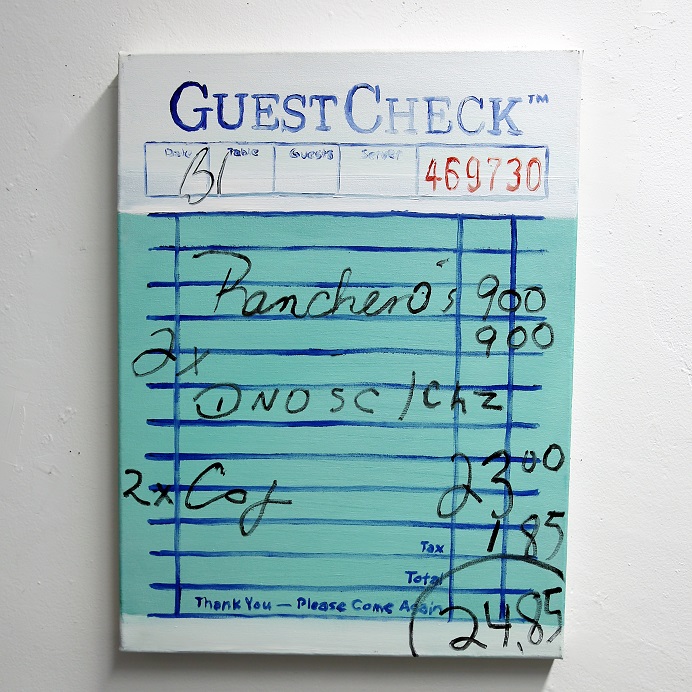 GUEST CHECK™
Date Table Guests Server 469730
B1
Ranchero's 900
2x 900
1 NO SC / Chz
2x Cof 23.00
Tax 1.85
Total
Thank You — Please Come Again 24.85